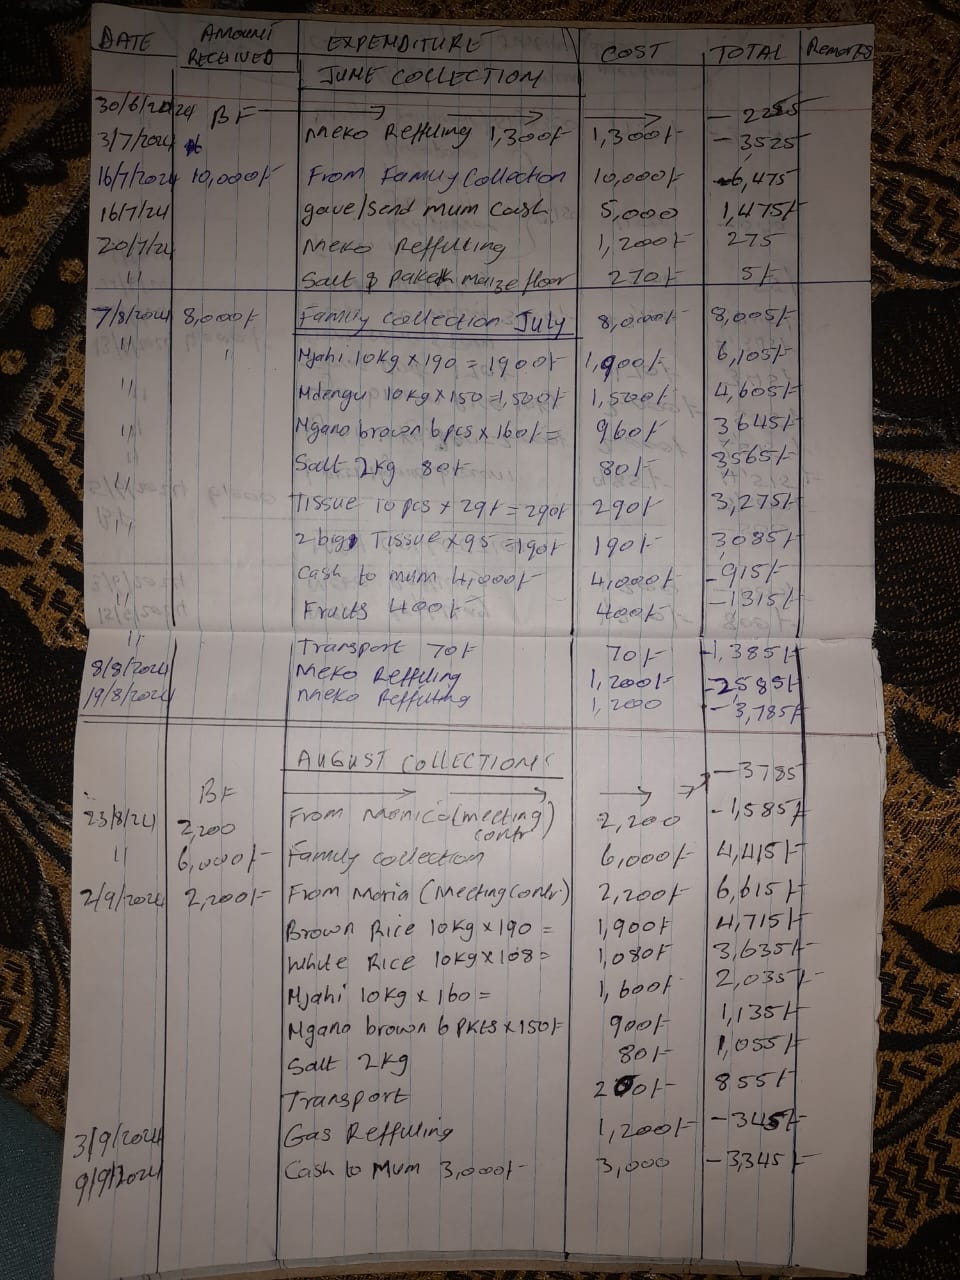 DATE AMOUNT RECEIVED EXPENDITURE COST TOTAL Remarks
JUNE COLLECTION
30/6/2024 BF → → → - 2225
3/7/2024 Meko Reffiling 1,300/- 1,300/- - 3525
16/7/2024 10,000/- From Family Collection 10,000/- 6,475
16/7/24 gave/send mum cash 5,000 1,475/-
20/7/24 Meko Reffilling 1,200/- 275
" Salt & paket maize floor 270/- 5/-
7/8/2024 8,000/- Family Collection July 8,000/- 8,005/-
" " Njahi 10kg x 190 = 1900/- 1,900/- 6,105/-
" Ndengu 10kg x 150 = 1,500/- 1,500/- 4,605/-
" Ngano brown 6pcs x 160/- = 960/- 3645/-
Salt 2kg 80/- 80/- 3565/-
" Tissue 10 pcs x 29/- = 290/- 290/- 3,275/-
" 2 big Tissue x 95 = 190/- 190/- 3085/-
Cash to mum 4,000/- 4,000/- - 915/-
" Fruits 400/- 400/- - 1315/-
" Transport 70/- 70/- - 1,385/-
8/8/2024 Meko Reffiling 1,200/- - 2585/-
19/8/2024 Meko Reffiling 1,200 - 3,785/-
AUGUST COLLECTIONS
BF → → → → - 3785
23/8/24 2,200 From Monica (meeting contr) 2,200 - 1,585/-
" 6,000/- Family collection 6,000/- 4,415/-
2/9/2024 2,200/- From Maria (Meeting Contr.) 2,200/- 6,615/-
Brown Rice 10kg x 190 = 1,900/- 4,715/-
White Rice 10kg x 108 = 1,080/- 3,635/-
Njahi 10kg x 160 = 1,600/- 2,035/-
Ngano brown 6 PKts x 150/- 900/- 1,135/-
Salt 2kg 80/- 1,055/-
Transport 200/- 855/-
3/9/2024 Gas Reffilling 1,200/- - 345/-
9/9/2024 Cash to Mum 3,000/- 3,000 - 3,345/-